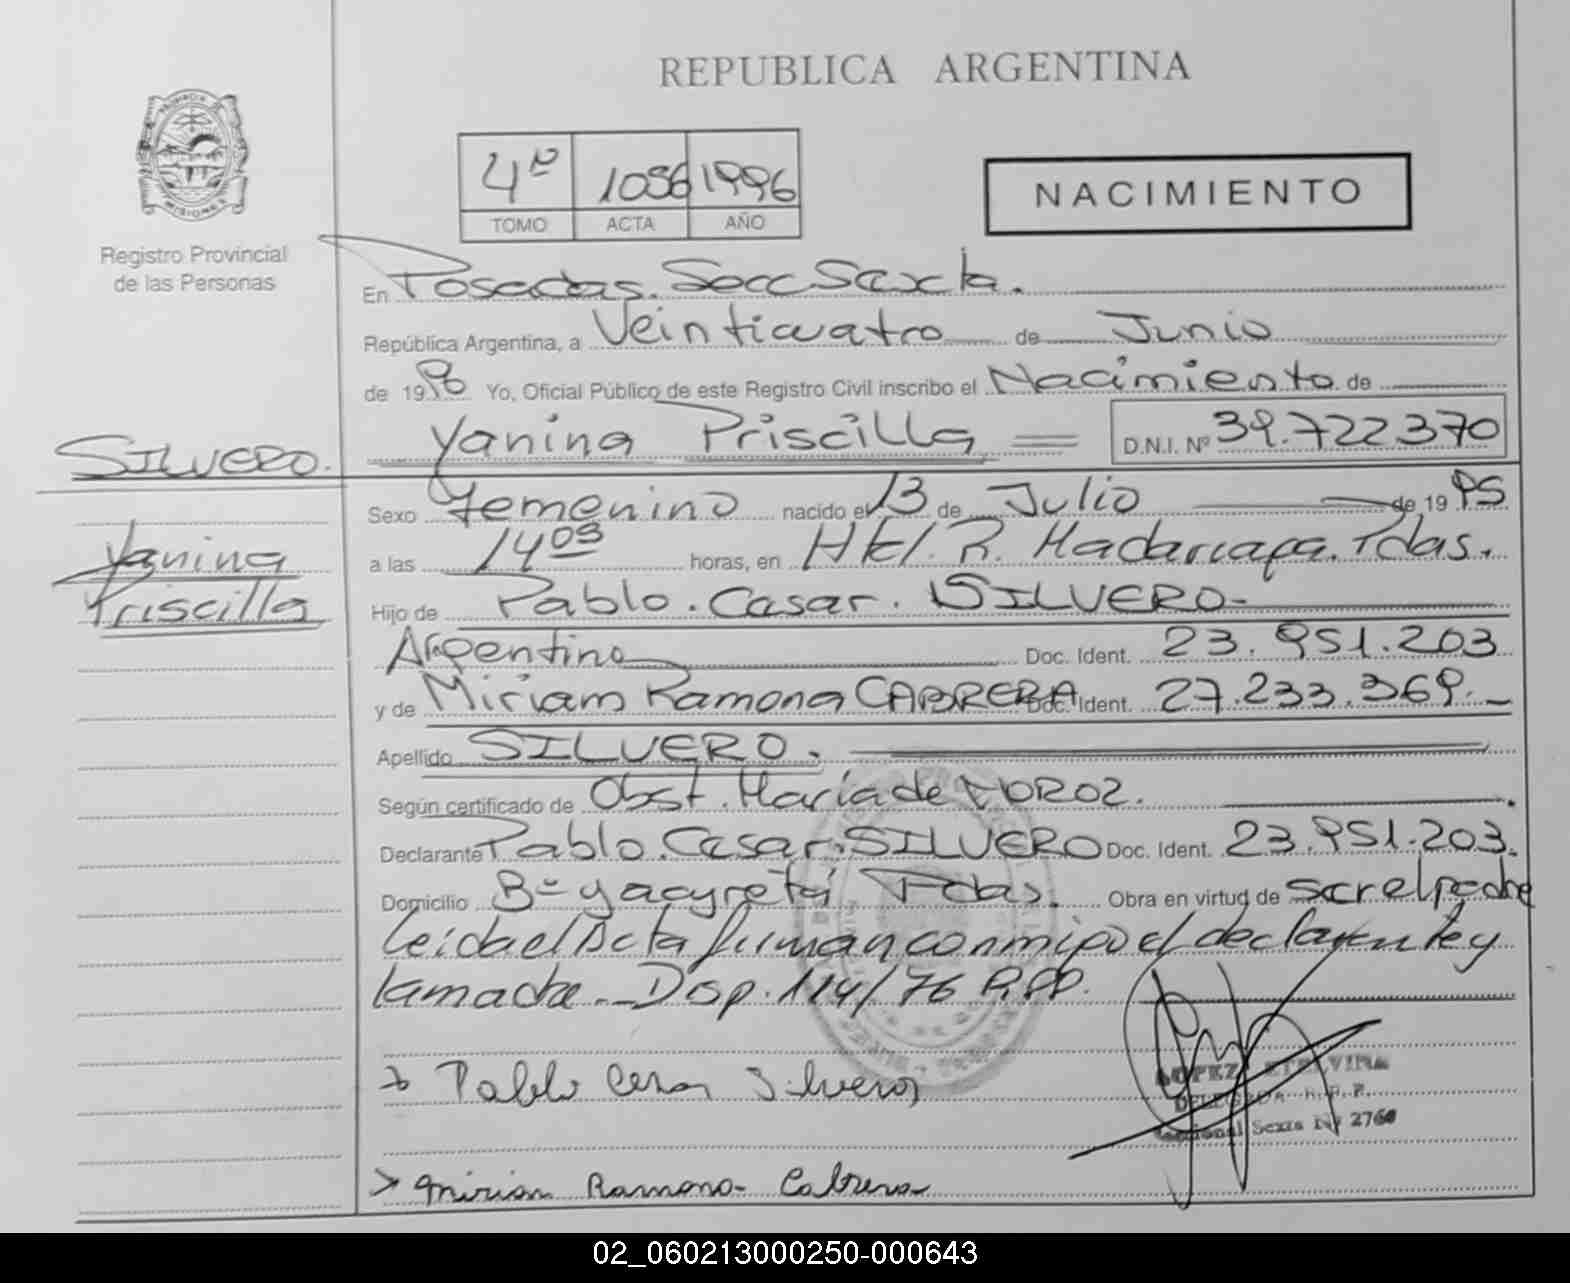 REPUBLICA ARGENTINA
PROVINCIA DE
MISIONES
Registro Provincial
de las Personas
4º 1056 1996
TOMO ACTA AÑO
NACIMIENTO
En Posadas. Secc Sexta.
República Argentina, a Veinticuatro de Junio
de 1996 Yo, Oficial Público de este Registro Civil inscribo el Nacimiento de
SILVERO. Yanina Priscilla D.N.I. Nº 39.722370
Sexo Femenino nacido el 13 de Julio de 1995
Yanina
Priscilla
a las 14 05 horas, en Htel. R. Madariaga. Pdas.
Hijo de Pablo. Cesar. SILVERO
Argentino Doc. Ident. 23.951.203
y de Miriam Ramona CABRERA Doc. Ident. 27.233.369.
Apellido SILVERO.
Según certificado de Obst. María de
Declarante Pablo. Cesar. SILVERO Doc. Ident. 23.951.203.
Domicilio Bº Yacyretá Pdas. Obra en virtud de ser el padre
leida el Acta firman conmigo el declarante y
la madre. Disp. 114/76 R.P.P.
Pablo Cesar Silvero
LOPEZ ETELVINA
DELEGADA R.P.P.
Seccional Sexta Nº 2760
Mirian Ramona Cabrera
02_060213000250-000643